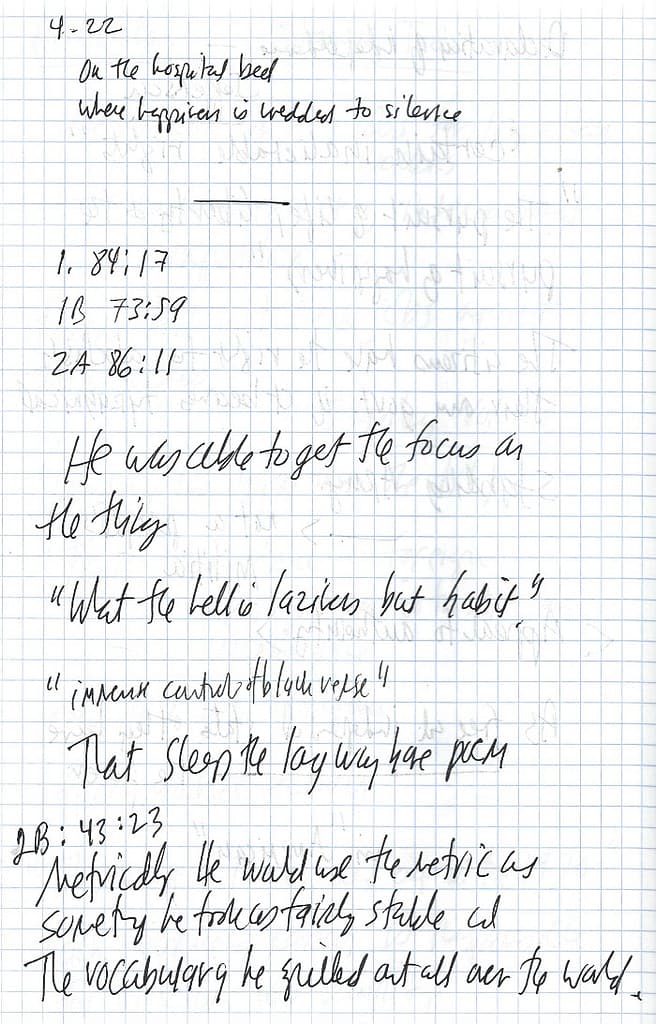 4-22
On the hospital bed
where happiness is wedded to silence
1. 84:17
1B 73:59
2A 86:11
He was able to get the focus on
the thing
"What the hell is laziness but habit"
"immense control of blank verse"
That Sleep the long way home poem
2B: 43:23
Metrically He would use the metric as
something he took as fairly stable and
The vocabulary he spilled out all over the world.